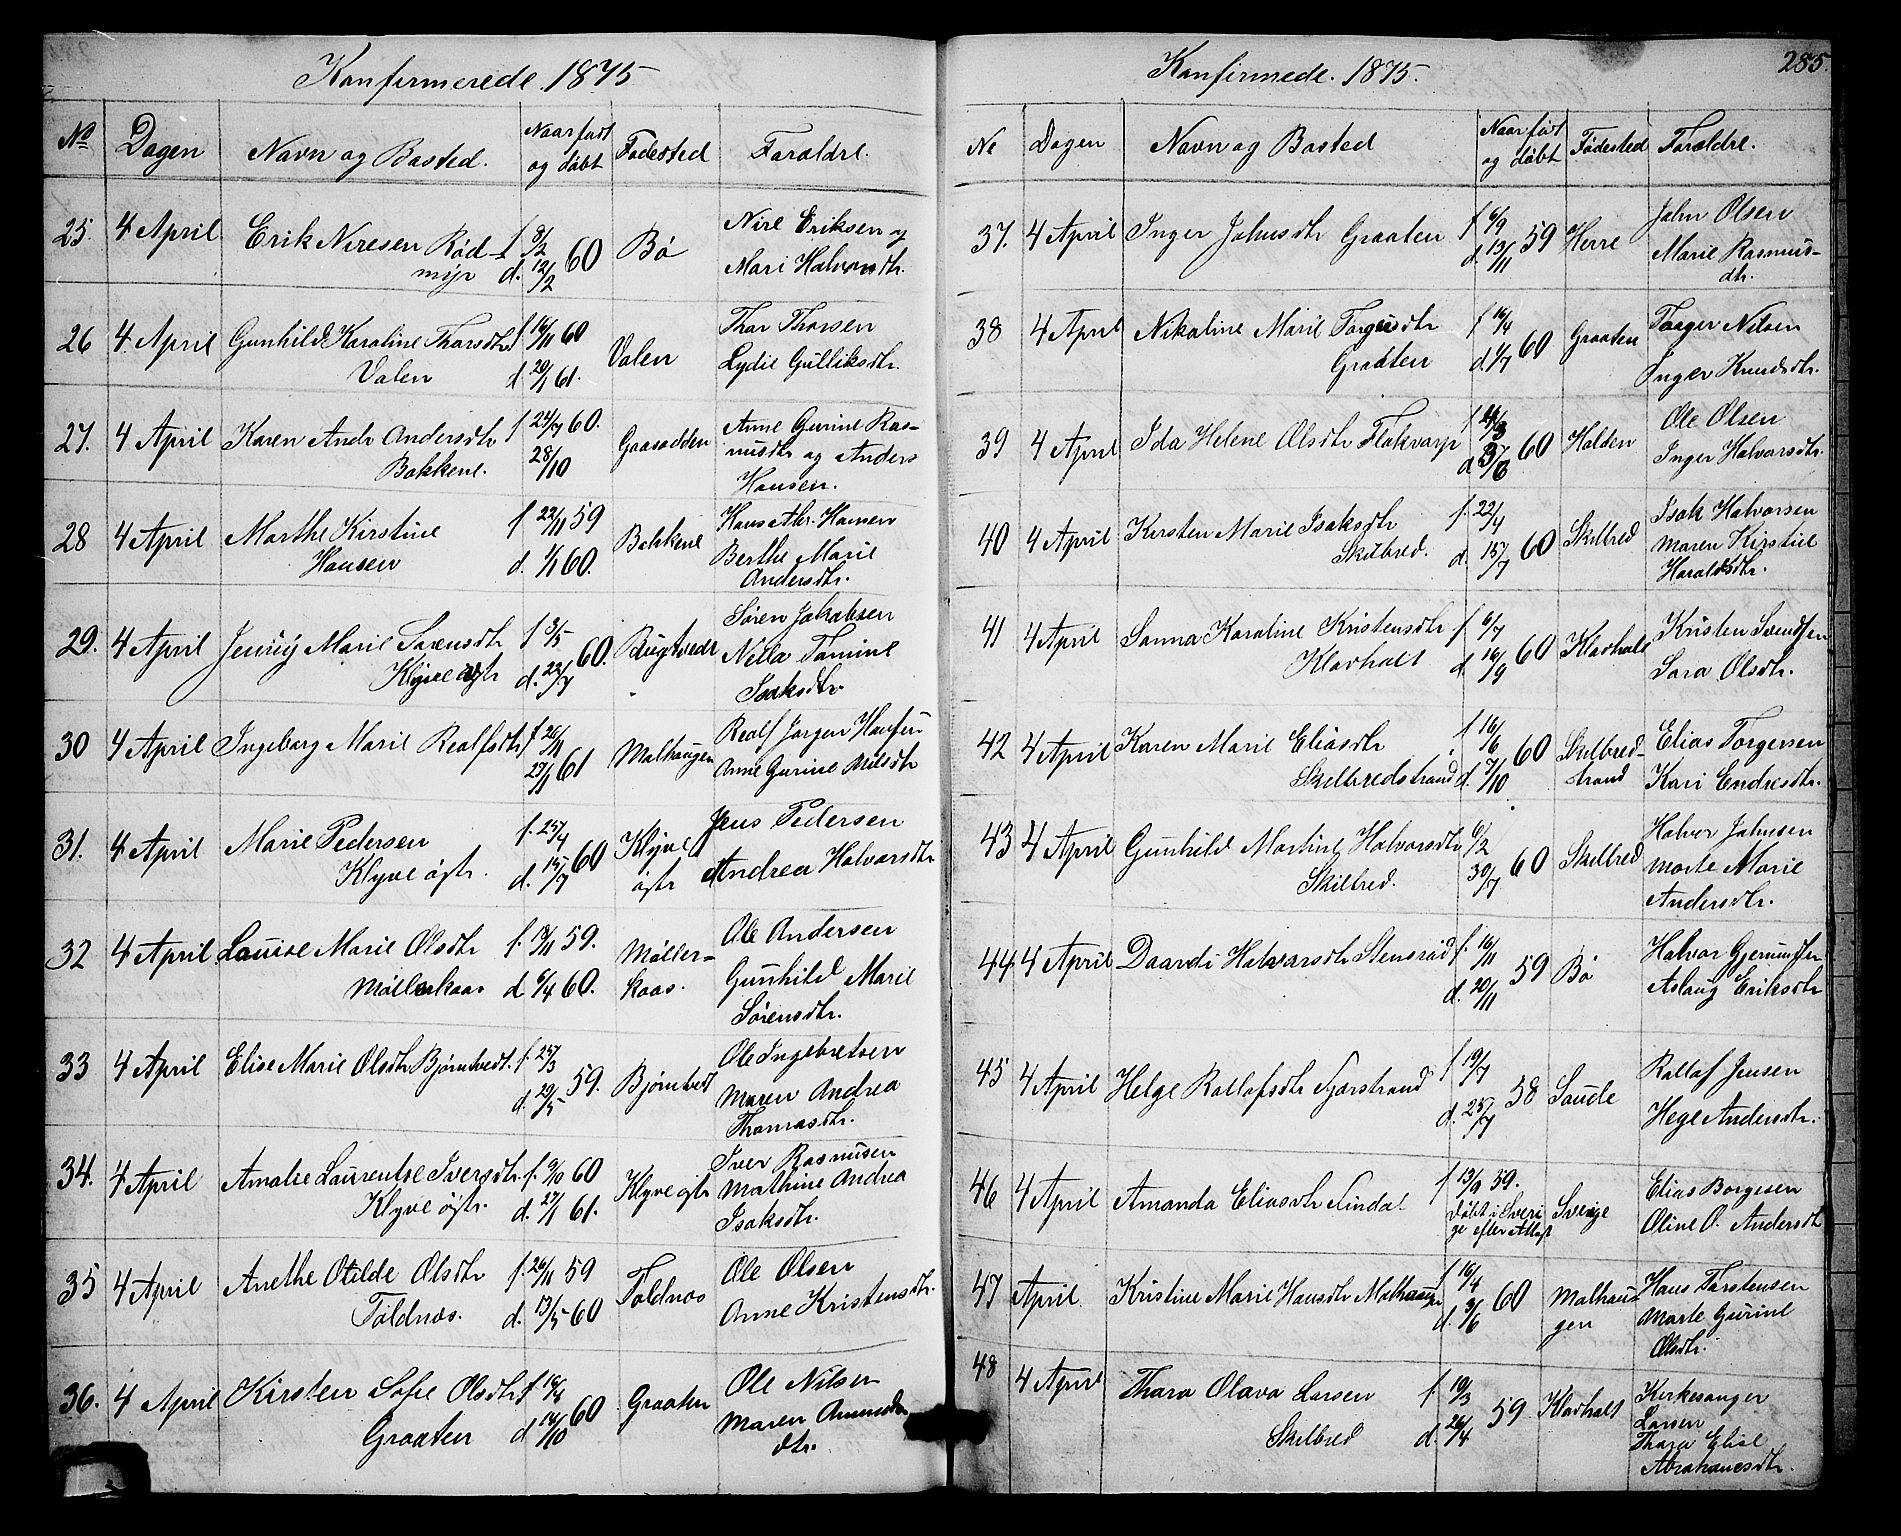 Konfirmerede 1875
No Dagen Navn og Bosted. Naar født og døbt Fødested Foræeldre.
25. 4 April Erik Niresen Rød- f 9/2 60 Bø Nire Eriksen og
myr d. 12/2 Mari Halvorsdtr.
26 4 April Gunhild Karoline Thorsdtr f 16/11 60 Valen Thor Thorsen
Valen d 20/1 61. Lydie Gulliksdtr.
27. 4 April Karen Andr Andersdtr f 24/7 60. Gaasodden Anne Gurine Ras-
Bakkene. 28/10 musdtr og Anders
Hansen.
28 4 April Marthe Kirstine f 22/11 59 Bakkene Hans Hansen
Hansen d. 1/1 60. Berthe Marie
Andersdtr.
29. 4 April Jenny Marie Sørensdtr f 3/5 60. Bugtvedt Søren Jakobsen
Klyve øgtr d. 22/7 Nella Tomine
Isaksdtr.
30 4 April Ingeborg Marie Realfsdtr f. 26/11 Malhaugen Realf Jørgen Hansen
27/1 61 Anne Gurine Nilsdtr
31. 4 April Marie Pedersen f. 25/4 60 Klyve Jens Pedersen
Klyve øgtr. d. 15/7 øgtr Andrea Halvorsdtr
32 4 April Louise Marie Olsdtr f. 19/11 59. Møller- Ole Andersen
Møllerkaas d 6/4 60. kaas. Gunhild Marie
Sørensdtr.
33 4 April Elise Marie Olsdtr Bjørntvedt. f. 25/3 Bjørntvedt Ole Ingebretsen
d. 29/5 59. Maren Andrea
Thomasdtr.
34. 4 April Amalie Laurentse Iversdtr. f. 9/10 60 Klyve øgtr Iver Rasmusen
Klyve øgtr. d. 27/1 61. Mathine Andrea
Isaksdtr.
35 4 April Anethe Otilde Olsdtr f. 26/11 59 Toldnæs Ole Olsen
Toldnæs. d. 13/5 60 Anne Kristensdtr.
36. 4 April Kirsten Sofie Olsdtr f 16/4 60 Graaten Ole Nilsen
Graaten d 14/10 Maren
dtr.
Konfirmede. 1875. 285.
No Dagen Navn og Bosted Naar født og døbt Fødested Forældre.
37. 4 April Inger Johnsdtr Graaten f 6/9 59 Herre John Olsen
d. 13/11 Marie Rasmus-
dtr.
38 4 April Nikoline Marie Torgersdtr f 16/4 60 Graaten Torger Nilsen
Graaten d. 1/7 Inger Knudsdtr.
39 4 April Ida Helene Olsdtr Flakvarp f 60 Holden Ole Olsen
d Inger Halvorsdtr.
40 4 April Kirsten Marie Isaksdtr f. 22/4 Skilbred Isak Halvorsen
Skilbred. d. 15/7 60 Maren Kirstine
Haraldsdtr.
41 4 April Sanna Karoline Kristensdtr f 6/7 60 Klovholt Kristen Svendsen
Klovholt d. 16/9 Sara Olsdtr.
42 4 April Karen Marie Eliasdtr f 16/6 60 Skilbred- Elias Torgersen
Skilbredstrand d. 7/10 strand Kari Endresdtr.
43 4 April Gunhild Martine Halvorsdtr 6/2 60 Skilbred Halvor Johnsen
Skilbred. 30/7 Marte Marie
Andersdtr.
44 4 April Daardi Halvorsdtr Stensrød f. 16/11 59 Bø Halvor Gjermundsen
d. 20/11 Aslaug Eriksdtr
45 4 April Helge Rollofsdtr Fjærstrand f 19/7 58 Saude Rollof Jensen
d. 25/7 Hege Andersdtr.
46 4 April Amanda Eliasdtr Lindal f 13/9 59. Sverige Elias Borgesen
Døbt i Sveri Oline O. Andersdt
ge efter Attest
47 April Kristine Marie Hansdtr Malhaugen f 16/4 60 Malhau- Hans Torstensen
d. 3/6 gen Marte Gurine
Olsdtr.
48 4 April Thora Olava Larsen f. 19/3 59 Klovholt Kirkesanger
Skilbred d. 26/4 Larsen
Thora Elise
Abrahamsdtr.